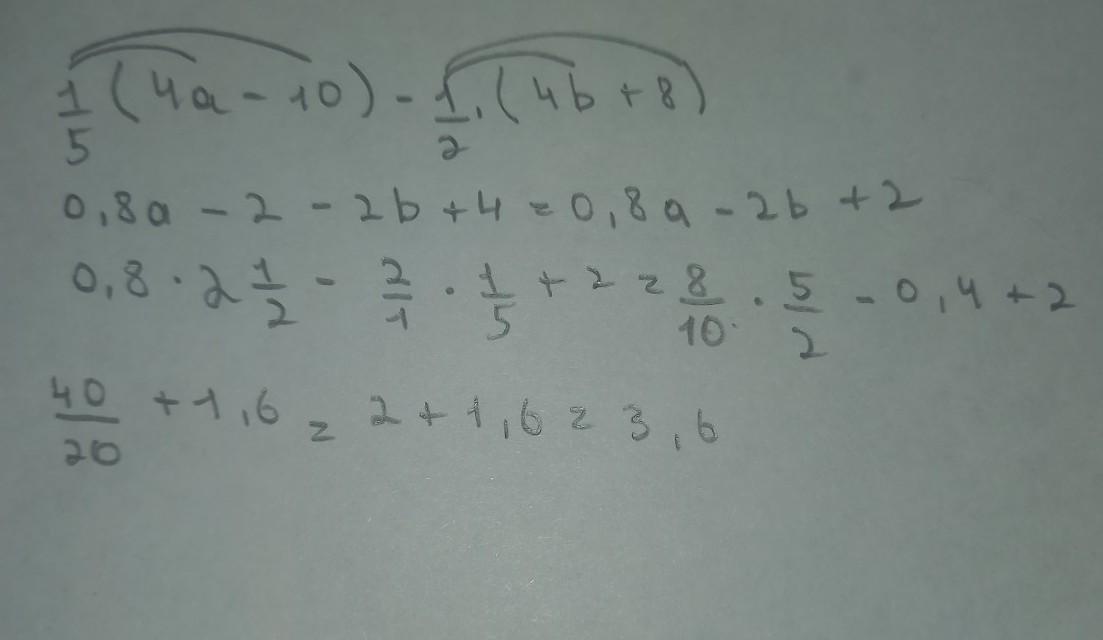 1/5 (4a - 10) - 1/2 · (4b + 8)
0,8a - 2 - 2b + 4 = 0,8a - 2b + 2
0,8 · 2 1/2 - 2/1 · 1/5 + 2 = 8/10 · 5/2 - 0,4 + 2
40/20 + 1,6 = 2 + 1,6 = 3,6